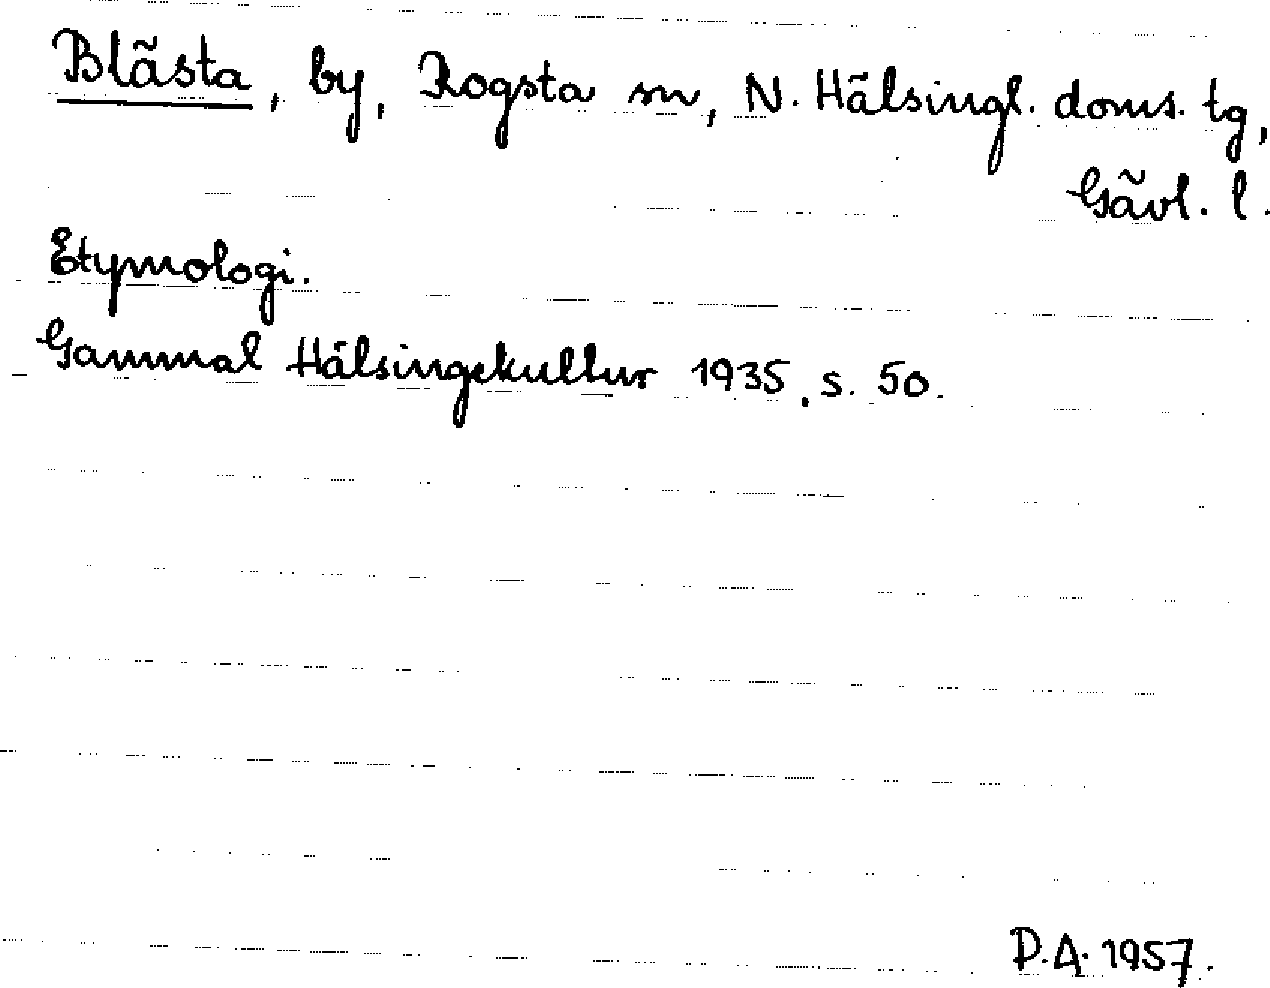 Blästa, by, Rogsta sn, N. Hälsingl. doms. tg,
Gävl. l.
Etymologi.
Gammal Hälsingekultur 1935, s. 50.
P.A. 1957.